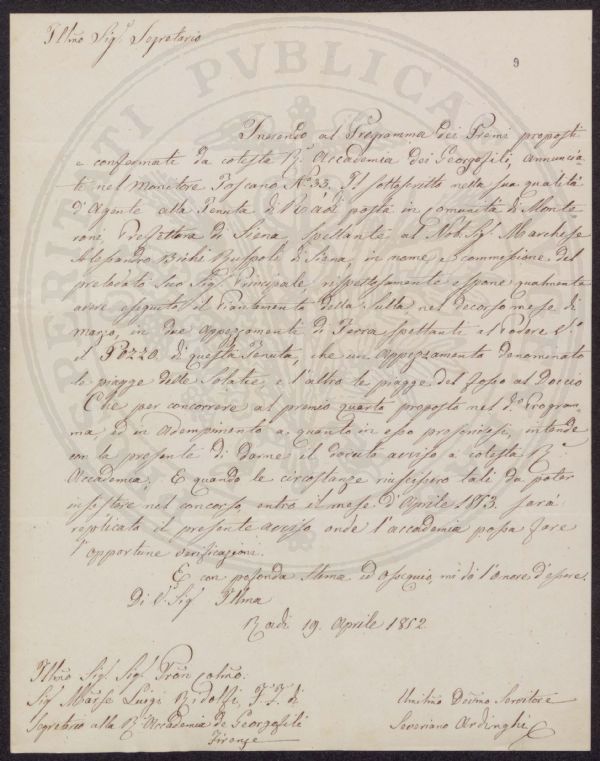 Illmo Sig.r Segretario
9
Inerendo al Programma dei Premi proposti
e confermati da cotesta R. Accademia dei Georgofili, annuncia-
te nel Monetore Toscano No. 33. Il sottoscritto nella sua qualità
d'Agente alla Tenuta di Radi posta in Comunità di Monte-
roni, Prefettura di Siena, spettante al Nob. Sig. Marchese
Alesandro Bichi Ruspoli di Siena, in nome, e commissione del
prelodato Suo Sig. Principale, rispettosamente espone qualmente
avere eseguito il Piantamento della Sulla nel decorso mese di
Marzo, in due appezzamenti di Terra spettanti al Podere
il Pozzo di questa Tenuta, che un appezzamento denominato
le piagge delle Solatie, e l'altro le piagge del fosso al Doccio
Che per concorrere al premio quarto proposto nel d.o Program-
ma, ed in adempimento a quanto in esso intende
con la presente di darne il dovuto avviso a cotesta R.a
Accademia. E quando le circostanze riuscissero tali da poter
insistere nel concorso, entro il mese d'Aprile 1853. sarà
replicato il presente avviso onde l'accademia possa fare
l'opportune verificazioni.
E con profonda stima ed ossequio, mi dò l'onore d'essere
Di V. Sig. Illma
Radi 19. Aprile 1852
Illmo Sig. Sig. Pron Colmo
Sig. Marse Luigi Ridolfi, F.F. di
Segretario alla R. Accademia de Georgofili
Firenze
Umilmo Devmo Servitore
Severiano Ardinghi
PERITI PVBLICA